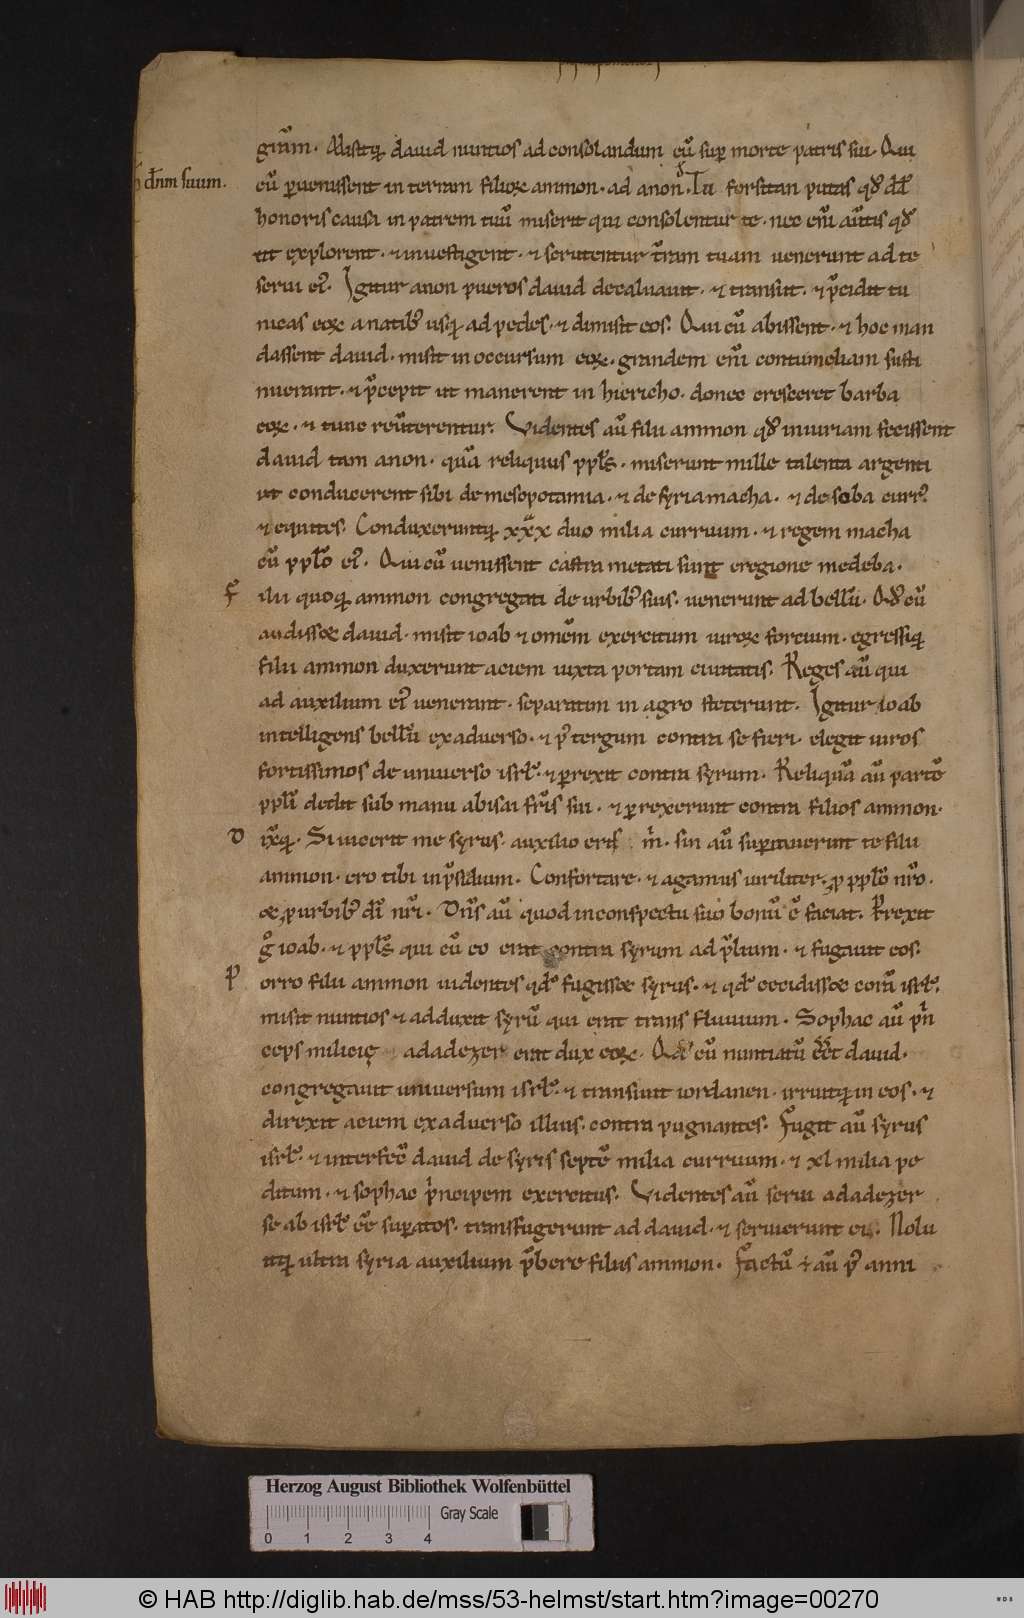 grãm. Misitq; dauid nuntios ad consolandum eũ sup morte patris sui. Qui
dñm suum.
cũ puenissent in terram filioꝝ ammon. ad anon. Tu forsitan putas qđ dđ
honoris causa in patrem tuũ miserit qui consolentur te. nec eni͂ aũtis qđ
ut explorent. ⁊ inuestigent. ⁊ scrutentur t͂ram tuam uenerunt ad te
serui ei᷒. Igitur anon pueros dauid decaluauit. ⁊ transit. ⁊ p͂cidit tu
nicas eoꝝ a natib᷒ usq; ad pedes. ⁊ dimisit eos. Qui cũ abissent. ⁊ hoc man
dassent dauid. misit in occursum eoꝝ. grandem eni͂ contumeliam susti
nuerant. ⁊ p͂cepit ut manerent in hiericho. donec cresceret barba
eoꝝ. ⁊ tunc reũterentur. Videntes aũ filii ammon qđ iniuriam fecissent
dauid tam anon. quã reliquus ppl͂s. miserunt mille talenta argenti
ut conducerent sibi de mesopotamia. ⁊ de syria macha. ⁊ de soba curr᷒
⁊ equites. Conduxeruntq; xxx duo milia curruum. ⁊ regem macha
cũ ppl͂o ei᷒. Qui cũ uenissent castra metati sunt e regione medeba.
F ilii quoq; ammon congregati de urbib᷒ suis. uenerunt ad bellũ. Qđ cũ
audisse& dauid. misit ioab ⁊ omem͂ exercitum uiroꝝ fortium. egressiq;
filii ammon duxerunt aciem iuxta portam ciuitatis. Reges aũ qui
ad auxilium ei᷒ uenerant. separatim in agro steterunt. Igitur ioab
intelligens bellũ ex aduerso. ⁊ p᷒ tergum contra se fieri. elegit uiros
fortissimos de uniuerso isrl͂. ⁊ prexit contra syrum. Reliquã aũ parte͂
ppl͂i dedit sub manu abisai fr͂is sui. ⁊ prexerunt contra filios ammon.
D ixitq;. Si uicerit me syrus. auxilio eris m͂. sin aũ supauerint te filii
ammon. ero tibi in p͂sidium. Confortare. ⁊ agamus uiriliter. p ppl͂o nr͂o.
& p urbib᷒ di͂ nr͂i. Dn͂s aũ quod in conspectu suo bonũ e͂ faciat. Prexit
g͛ ioab. ⁊ ppl͂s qui cũ eo erat contra syrum ad p͂lium. ⁊ fugauit eos.
P orro filii ammon uidentes qđ fugisse& syrus. ⁊ qđ cecidisse& corã isrl͂.
misit nuntios ⁊ adduxit syrũ qui erat trans fluuium. Sophac aũ p͂n
ceps militię adadezer erat dux eoꝝ. Qđ cũ nuntiatũ e͂e͂t dauid.
congregauit uniuersum isrl͂. ⁊ transiuit iordanen. irruitq; in eos. ⁊
direxit aciem ex aduerso illius. contra pugnantes. Fugit aũ syrus
isrl͂. ⁊ interfec͂ dauid de syris septe͂ milia curruum. ⁊ xl milia pe
ditum. ⁊ sophac p͂ncipem exercitus. Videntes aũ serui adadezer
se ab isrl͂ ee͂ supatos. transfugerunt ad dauid. ⁊ seruierunt ei. Nolu
itq; ultra syria auxilium p͂bere filiis ammon. Factũ ÷ aũ p᷒ anni
Herzog August Bibliothek Wolfenbüttel
0 1 2 3 4 Gray Scale
© HAB http://diglib.hab.de/mss/53-helmst/start.htm?image=00270